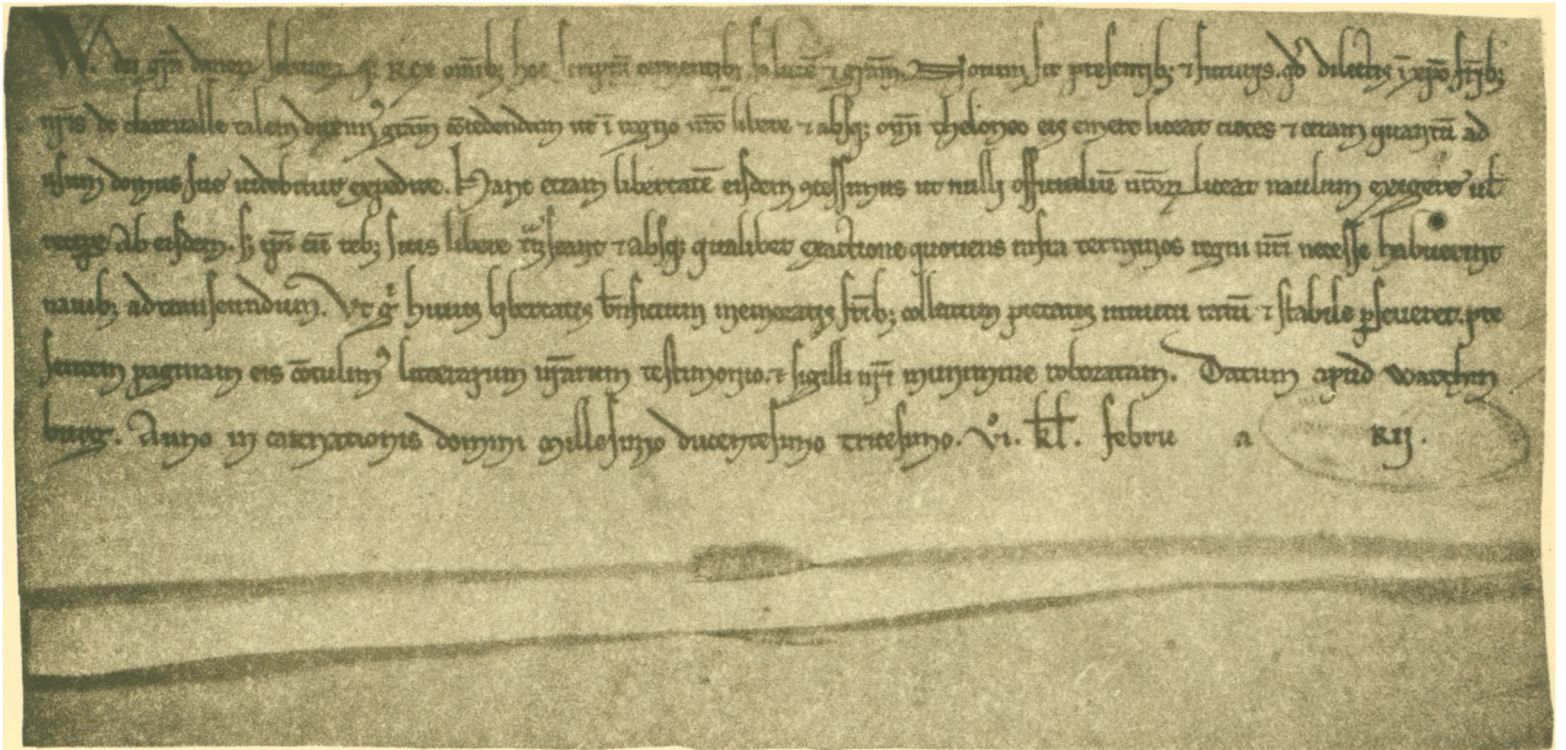 W. dei gr̄a danor̄ sclauor̄ q; rex om̄ib; hoc scriptū cernentib; salutē ⁊ gr̄am. Notum sit presentib; ⁊ futuris. qd̕ dilectis ī xp̄o fr̄ib;
nr̄is de clareualle talem duxim᾽ grām cōcedendam ut ī regno nr̄o libere ⁊ absq; om̄i theloneo eis emere liceat ceras ⁊ ceram quantū ad
usum domus sue uidebitur expedire. Hanc etiam libertatē eisdem ꝯcessimus ut nulli officialiū nr̄oꝝ liceat naulum exigere ul̄
ab eisdem. s; ip̄i cū reb; suis libere tr̄nseant ⁊ absq; qualibet exactione quotiens infra terminos regni nr̄i necesse habuerint
nauib; ad transeundum. Vt g̊ huius libertatis bn̄ficium memoratis fr̄ib; collatum pietatis intuitu ratū ⁊ stabile ꝑseueret. pre
sentem paginam eis cōtulim᾽ litterarum nr̄arum testimonio. ⁊ sigilli nr̄i munimine roboratam. Datum apud warthin
burg. Anno in carnationis domini millesimo ducentesimo tricesimo. vi. kl̄. febru a rij.